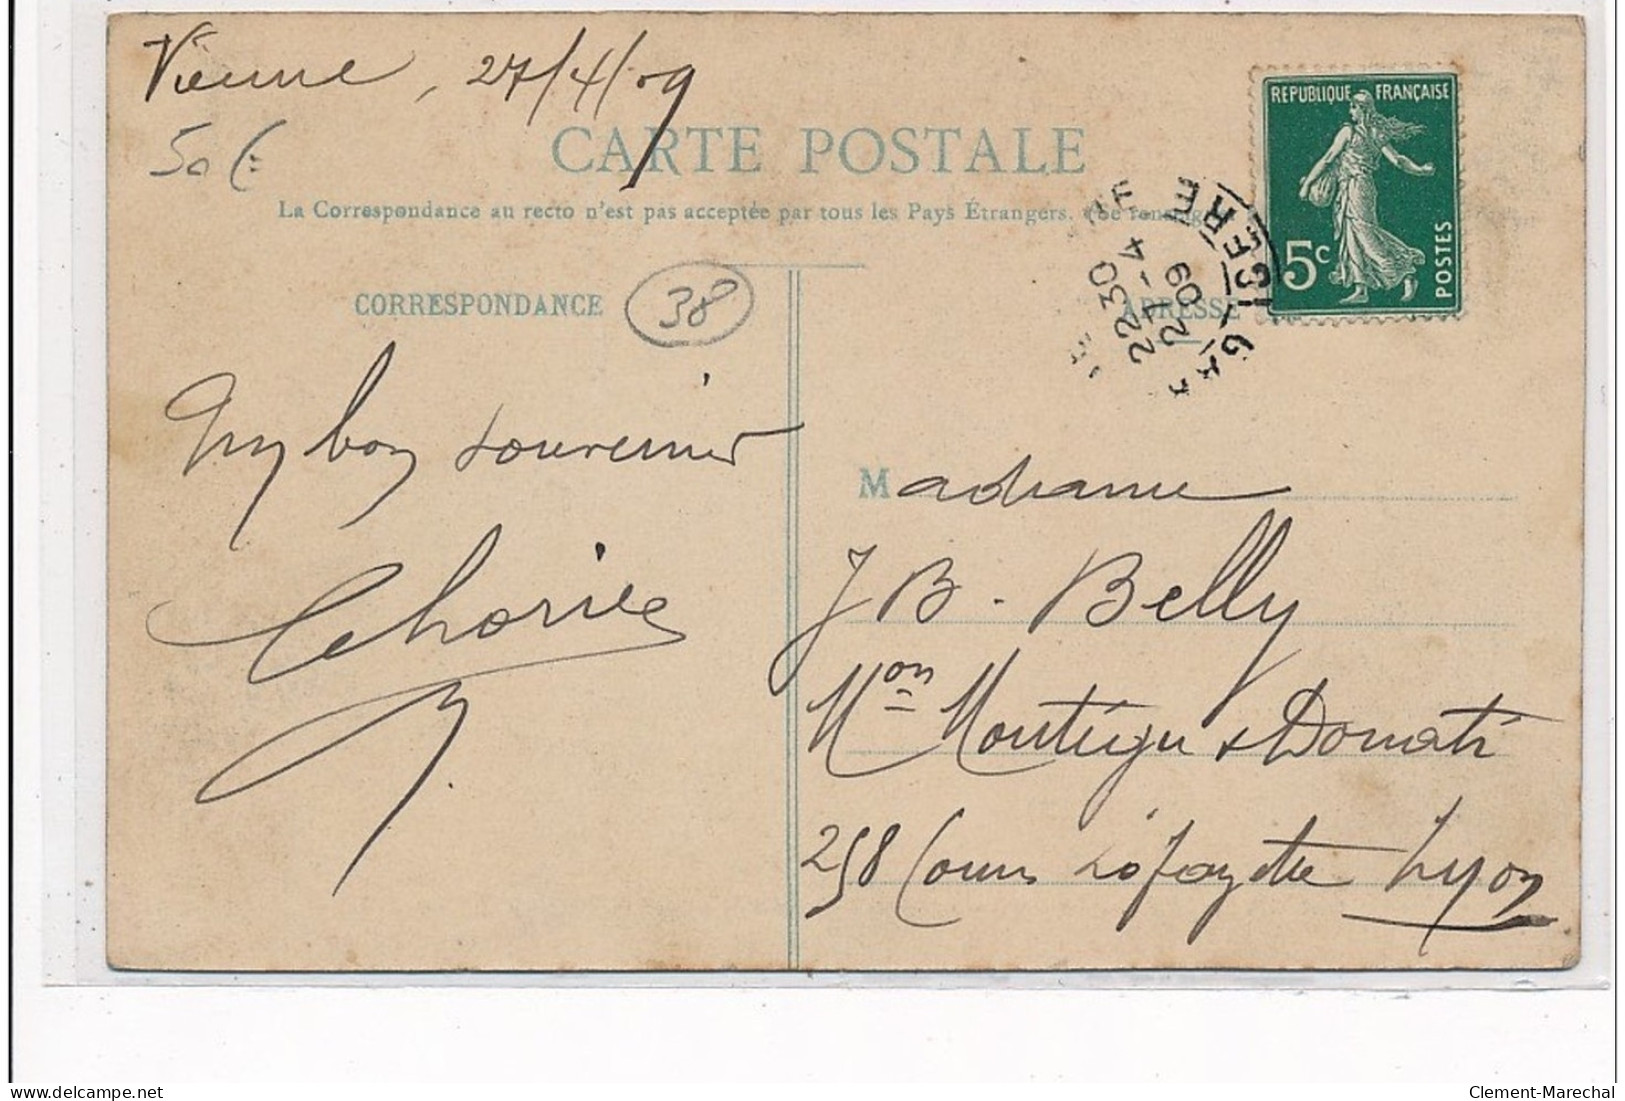 Vienne, 27/4/09
50 €
CARTE POSTALE
La Correspondance au recto n'est pas acceptée par tous les Pays Étrangers. (Se renseig
REPUBLIQUE FRANÇAISE
5c
POSTES
22 30
27-4
09
ISERE
GARE
CORRESPONDANCE
38
ADRESSE
My bon souvenir
Madame
J B. Belly
Mon Montégu & Donati
258 Cours Lafayette Lyon
delcampe.net
Clement-Marechal